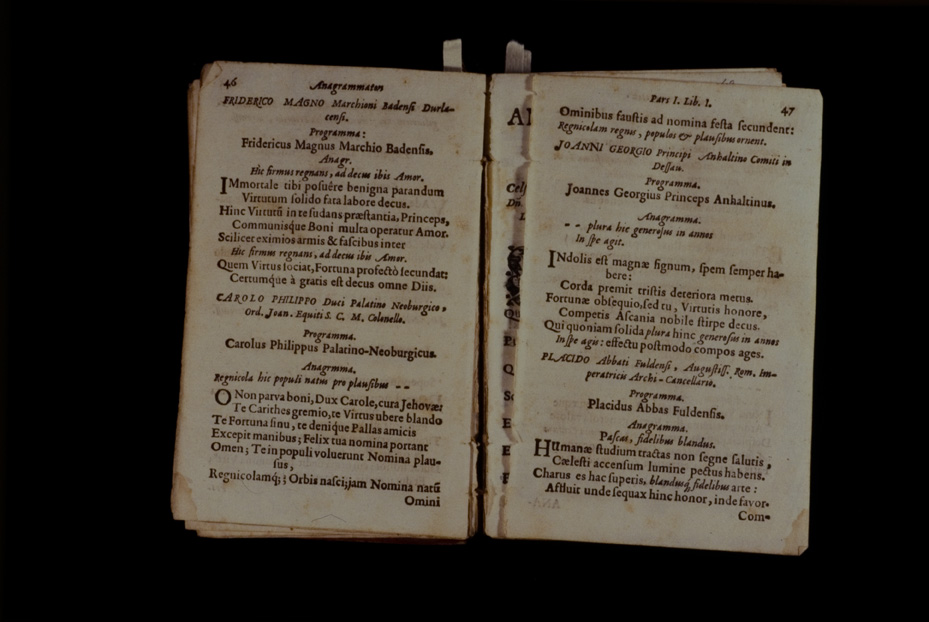 46 Anagrammatum
FRIDERICO MAGNO Marchioni Badensi Durla-
censi.
Programma:
Fridericus Magnus Marchio Badensis.
Anagr.
Hic firmus regnans, ad decus ibis Amor.
IMmortale tibi posuêre benigna parandum
Virtutum solido fata labore decus.
Hinc Virtutū in te sudans præstantia, Princeps,
Communisque Boni multa operatur Amor.
Scilicet eximios armis & fascibus inter
Hic firmus regnans, ad decus ibis Amor.
Quem Virtus sociat, Fortuna profectò secundat:
Certumque à gratis est decus omne Diis.
CAROLO PHILIPPO Duci Palatino Neoburgico,
Ord. Joan. Equiti S. C. M. Colonello.
Programma.
Carolus Philippus Palatino-Neoburgicus.
Anagrāma.
Regnicola hic populi natus pro plausibus - -
O Non parva boni, Dux Carole, cura Jehovæ:
Te Carithes gremio, te Virtus ubere blando
Te Fortuna sinu, te denique Pallas amicis
Excepit manibus; Felix tua nomina portant
Omen; Te in populi voluerunt Nomina plau-
sus,
Regnicolamq́; ; Orbis nasci; jam Nomina natū
Omini
Pars I. Lib. I. 47
Ominibus faustis ad nomina festa secundent:
Regnicolam regnis, populos & plausibus ornent.
JOANNI GEORGIO Principi Anhaltino Comiti in
Dessau.
Programma.
Joannes Georgius Princeps Anhaltinus.
Anagramma.
- - plura hic generosus in annos
In spe agit.
INdolis est magnæ signum, spem semper ha-
bere:
Corda premit tristis deteriora metus.
Fortunæ obsequio, sed tu, Virtutis honore,
Competis Ascania nobile stirpe decus.
Qui quoniam solida plura hinc generosus in annos
In spe agis: effectu postmodo compos ages.
PLACIDO Abbati Fuldensi, Augustiss. Rom. Im-
peratricis Archi-Cancellario.
Programma.
Placidus Abbas Fuldensis.
Anagramma.
Pascas, fidelibus blandus.
HUmanæ studium tractas non segne salutis,
Cælesti accensum lumine pectus habens.
Charus es hac superis, blandusq́, fidelibus arte:
Affluit unde sequax hinc honor, inde favor.
Com-